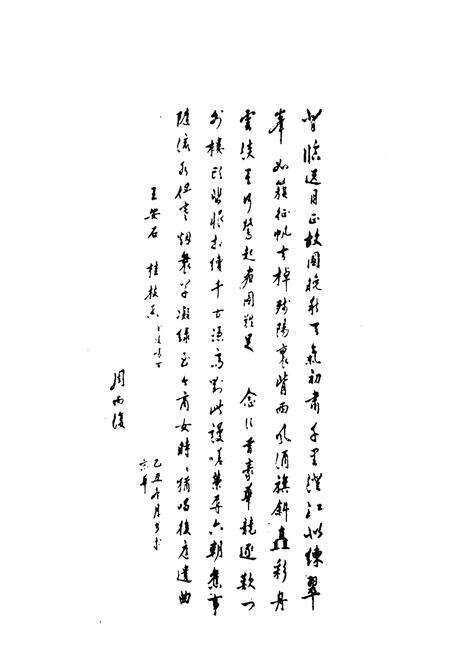 登臨送目正故国晚秋天氣初肅千里澄江似練翠
峯如簇征帆去棹殘陽裏背西風酒旗斜矗彩舟
雲淡星河鷺起畫圖難足 念往昔豪華競逐歎門
外樓頭悲恨相續千古憑高對此謾嗟榮辱六朝舊事
隨流水但寒烟衰草凝緑至今商女時時猶唱後庭遺曲
王安石 桂枝香
周而復
乙丑十月